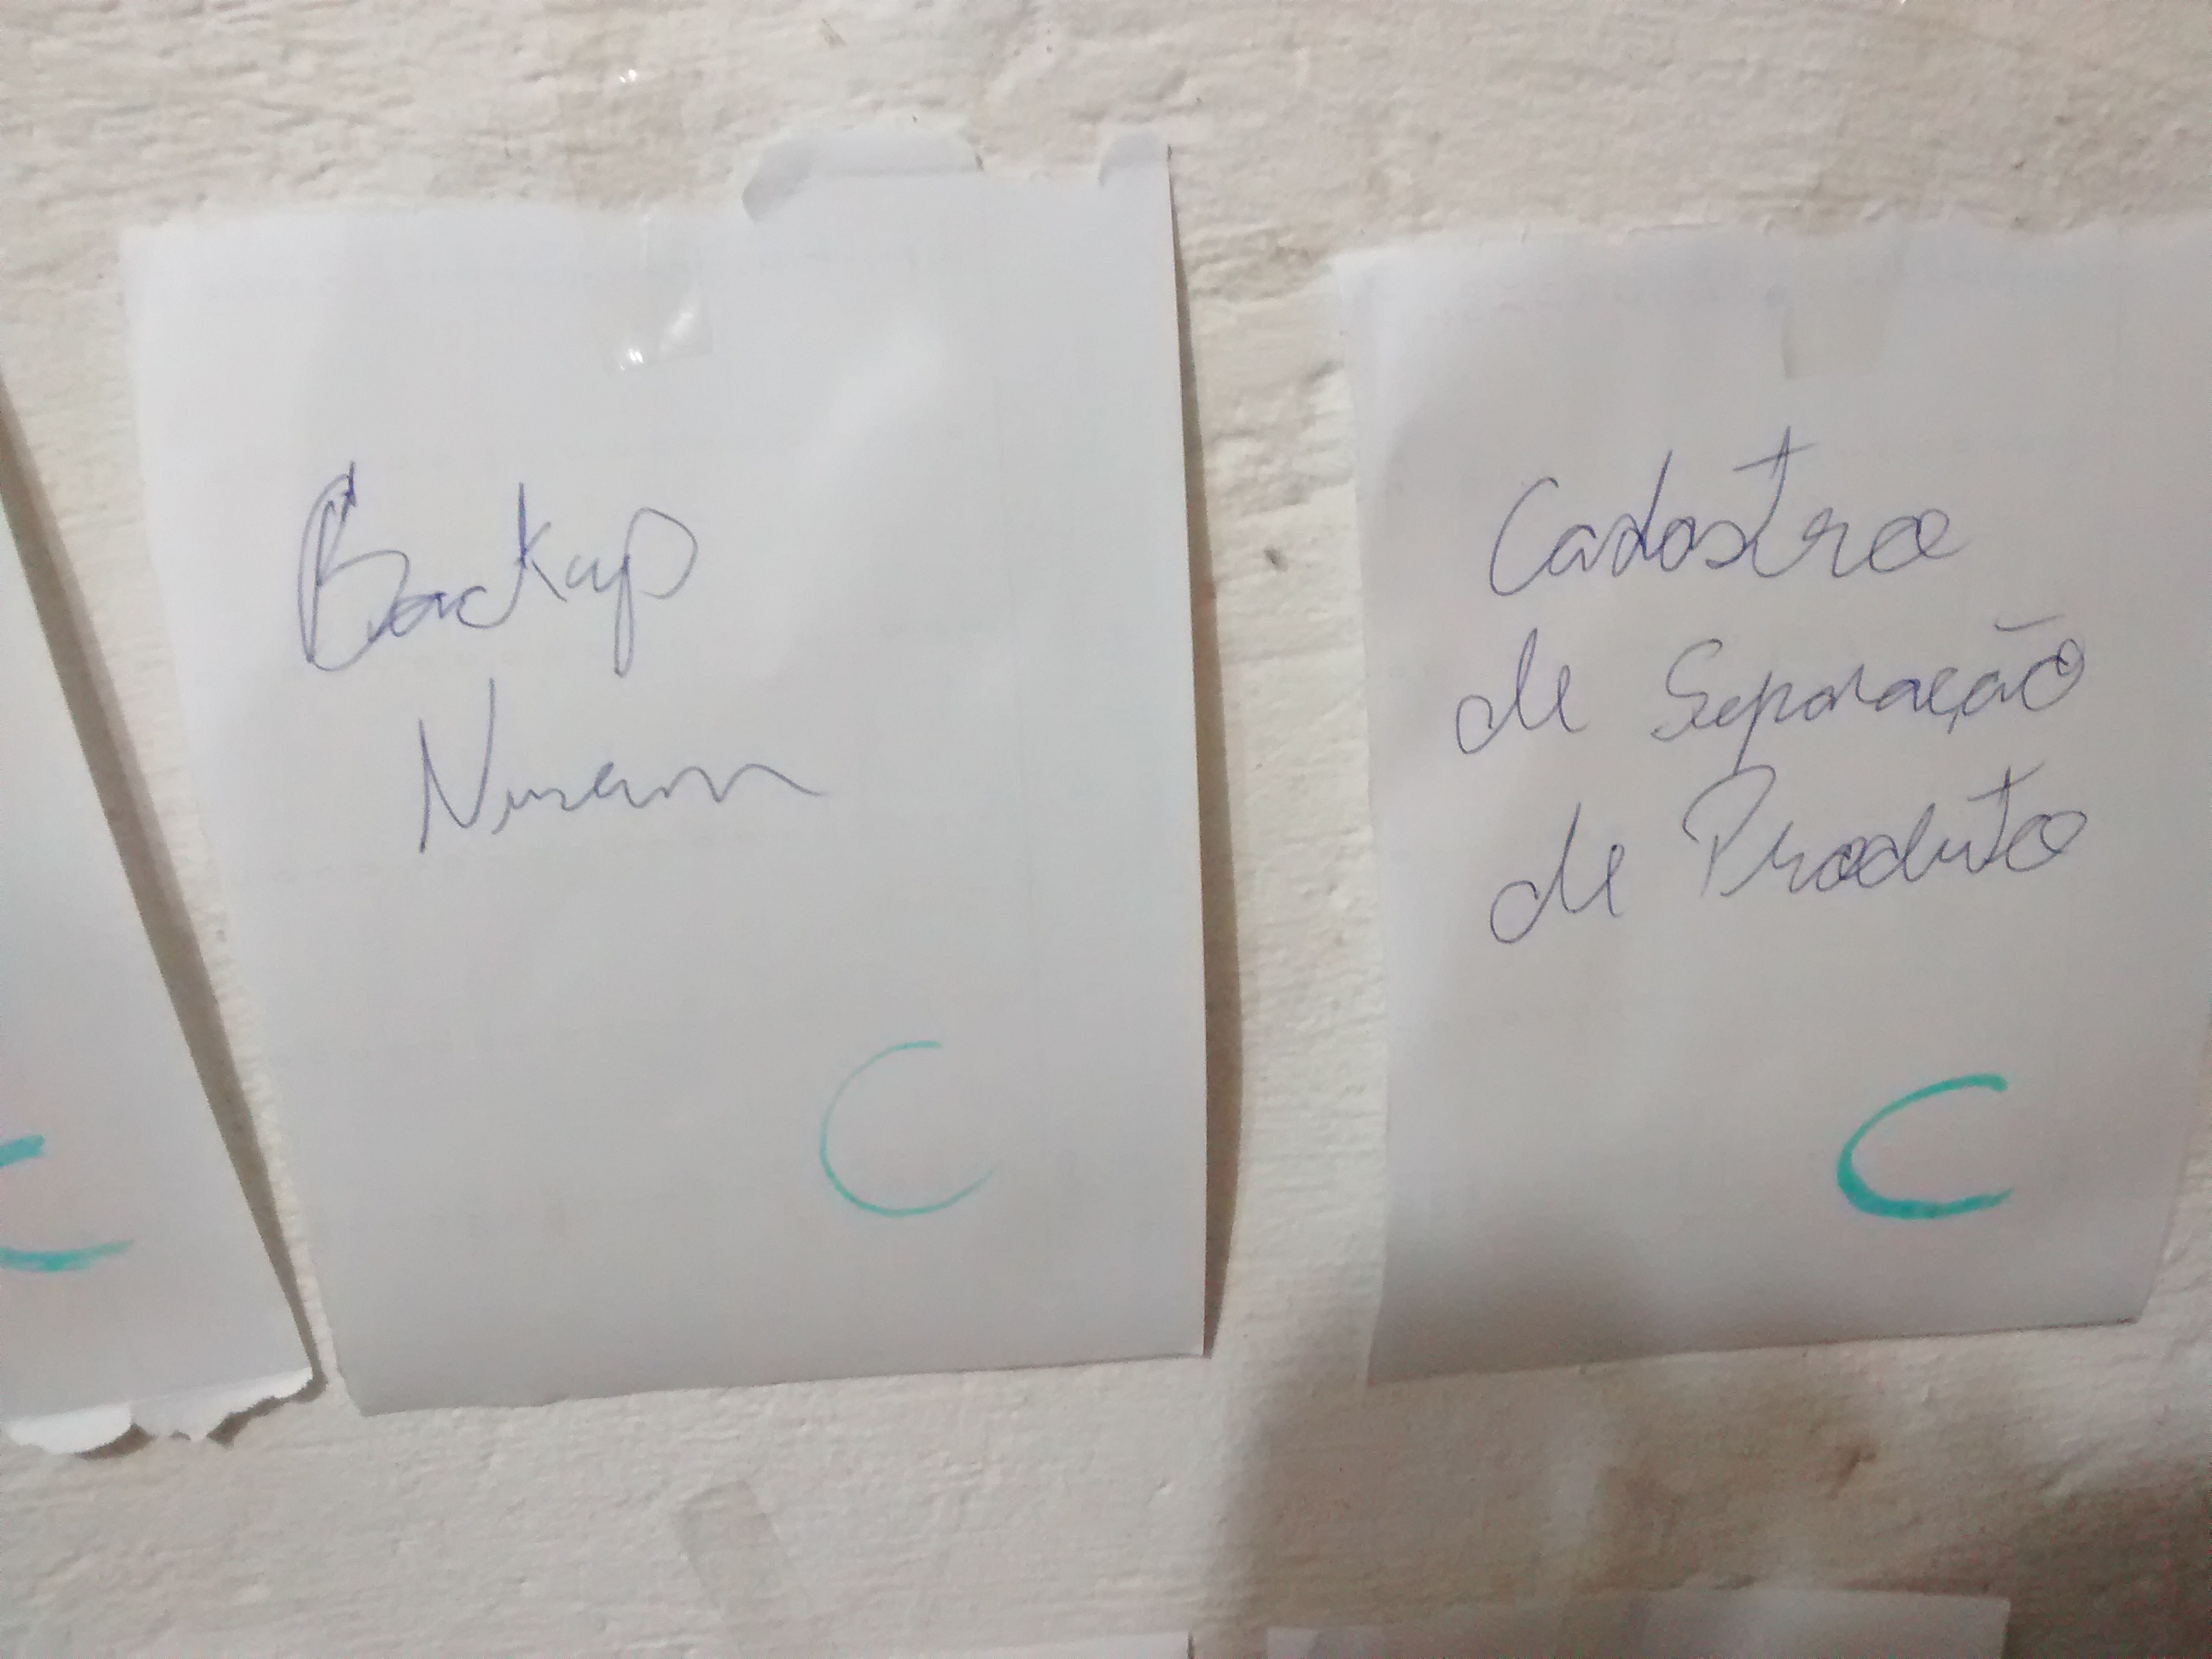 Backup
Nuvem
C
Cadastro
de Separação
de Produto
C
C